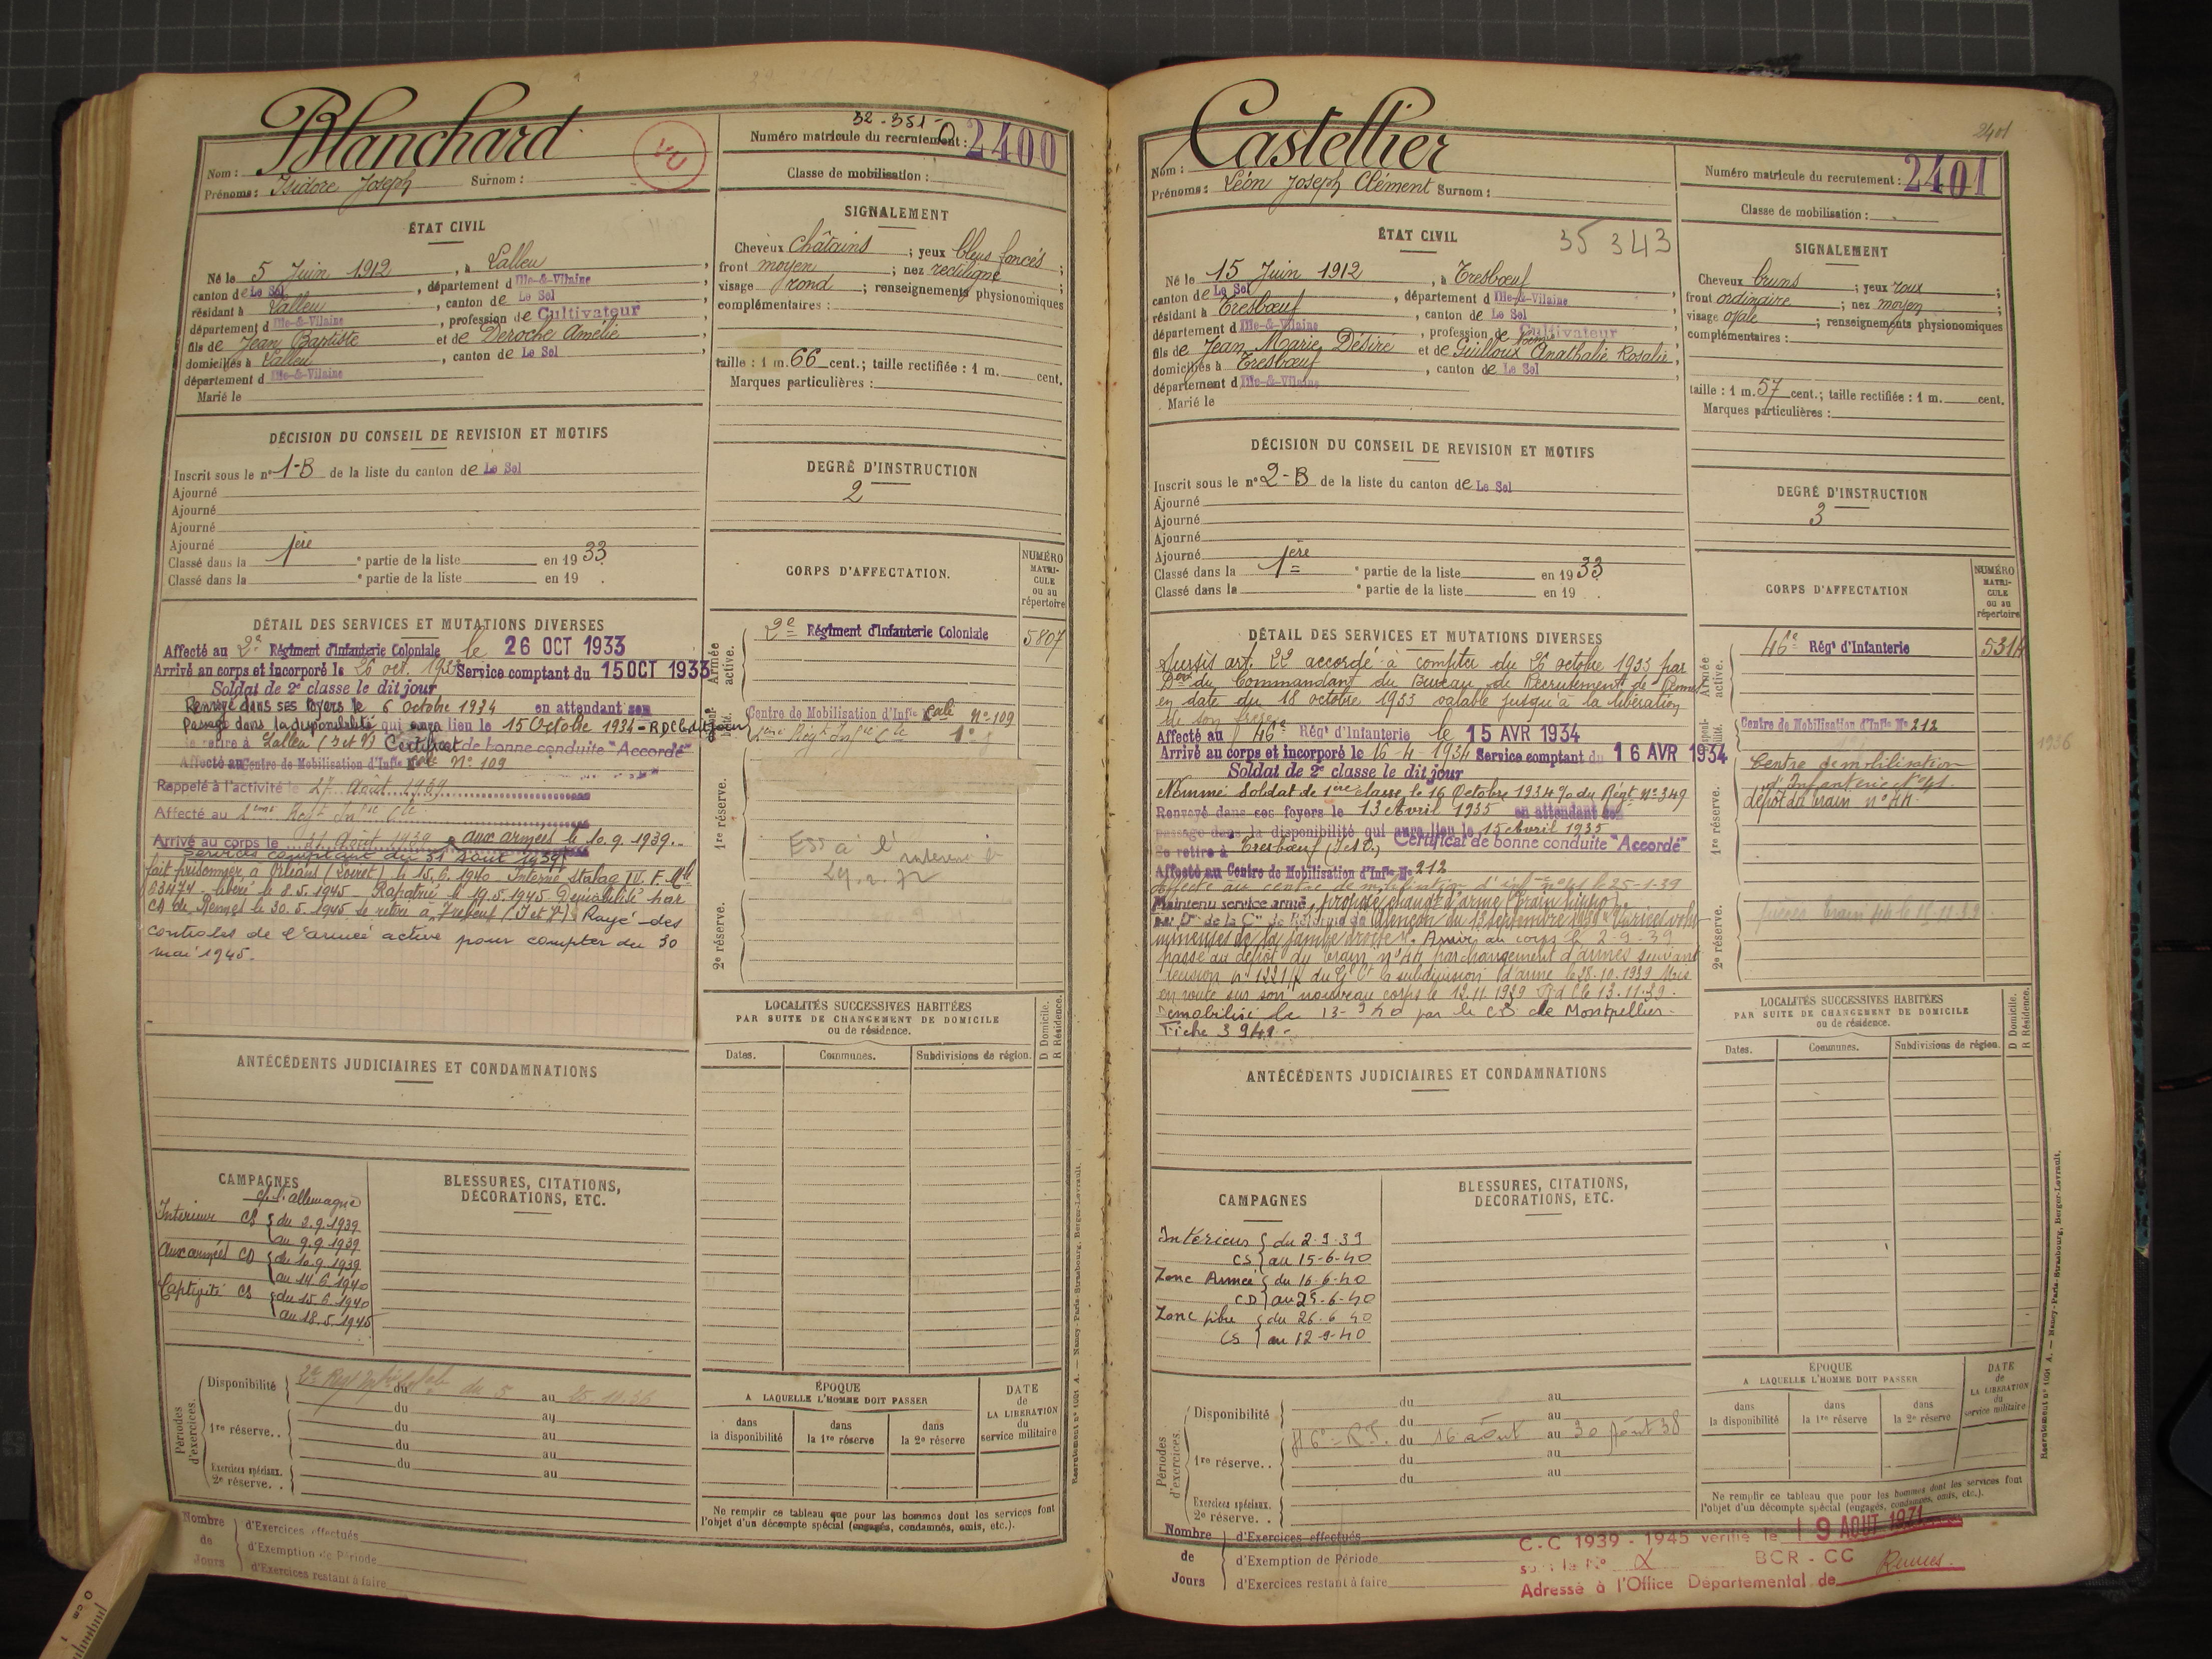 Blanchard
Nom :
Prénoms : Isidore Joseph Surnom :
32-351-
Numéro matricule du recrutement : 2400
Classe de mobilisation :
ÉTAT CIVIL
Né le 5 Juin 1912, à Lalleu,
canton de Le Sel, département d Ille-&-Vilaine
résidant à Lalleu, canton de Le Sel
département d Ille-&-Vilaine, profession de Cultivateur
fils de Jean Baptiste et de Deroche Amélie
domiciliés à Lalleu, canton de Le Sel
département d Ille-&-Vilaine
Marié le
SIGNALEMENT
Cheveux châtains ; yeux bleus foncés ;
front moyen ; nez rectiligne ;
visage rond ; renseignements physionomiques
complémentaires :
taille : 1 m. 66 cent.; taille rectifiée : 1 m. cent.
Marques particulières :
DÉCISION DU CONSEIL DE REVISION ET MOTIFS
Inscrit sous le n° 1-B de la liste du canton de Le Sel
Ajourné
Ajourné
Ajourné
Ajourné
Classé dans la 1ère partie de la liste en 1933
Classé dans la partie de la liste en 19
DEGRÉ D'INSTRUCTION
2
DÉTAIL DES SERVICES ET MUTATIONS DIVERSES
Affecté au 2e Régiment d'Infanterie Coloniale le 26 OCT 1933
Arrivé au corps et incorporé le 26 oct. 1933 Service comptant du 15 OCT 1933
Soldat de 2e classe le dit jour
Renvoyé dans ses foyers le 6 Octobre 1934 en attendant son
passage dans la disponibilité qui aura lieu le 15 Octobre 1934
Se retire à Lalleu (I et V) Certificat de bonne conduite "Accordé"
Affecté au Centre de Mobilisation d'Infie Cole N° 109
Rappelé à l'activité le 27 Août 1939
Affecté au 2ème Regt Infrie Cle
Arrivé au corps le 31 Août 1939 aux armées le 10.9.1939
Services comptant du 31 Août 1939
fait prisonnier à Orléans (Loiret) le 15.6.1940 Interné Stalag IV. F. Mle
63474 libéré le 8.5.1945 Rapatrié le 19.5.1945 Démobilisé par
CD de Rennes le 30.5.1945 se retire à Tresbeuf (I et V) Rayé des
controles de l'armée active pour compter du 30
mai 1945.
CORPS D'AFFECTATION.
NUMÉRO MATRICULE OU AU répertoire
Armée active.
2e Régiment d'Infanterie Coloniale 5807
Disponibilité.
Centre de Mobilisation d'Infie Cole N° 109
2ème Regt Infie Cle
1re réserve.
29.2.72
2e réserve.
LOCALITÉS SUCCESSIVES HABITÉES
PAR SUITE DE CHANGEMENT DE DOMICILE
ou de résidence.
D Domicile.
R Résidence.
Dates. Communes. Subdivisions de région.
ANTÉCÉDENTS JUDICIAIRES ET CONDAMNATIONS
CAMPAGNES
c/ l'allemagne
Intérieur CS du 2.9.1939
au 9.9.1939
Aux armées CD du 10.9.1939
au 14.6.1940
Captivité CS du 15.6.1940
au 18.5.1945
BLESSURES, CITATIONS,
DÉCORATIONS, ETC.
Périodes d'exercices.
Disponibilité du 5 au
du au
1re réserve.. du au
du au
du au
Exercices spéciaux.
2e réserve. .
ÉPOQUE
A LAQUELLE L'HOMME DOIT PASSER
dans la disponibilité
dans la 1re réserve
dans la 2e réserve
DATE de LA LIBÉRATION du service militaire
Ne remplir ce tableau que pour les hommes dont les services font
l'objet d'un décompte spécial (engagés, condamnés, omis, etc.).
Nombre de Jours
d'Exercices effectués
d'Exemption de Période
d'Exercices restant à faire
Recrutement n° 1601 A. — Nancy-Paris-Strasbourg, Berger-Levrault.
2401
Castellier
Nom :
Prénoms : Léon Joseph Clément Surnom :
Numéro matricule du recrutement : 2401
Classe de mobilisation :
ÉTAT CIVIL
35343
Né le 15 Juin 1912, à Tresbœuf
canton de Le Sel, département d Ille-&-Vilaine
résidant à Tresbœuf, canton de Le Sel
département d Ille-&-Vilaine, profession de Cultivateur
fils de Jean Marie Désiré et de Guilloux Anathalie Rosalie
domiciliés à Tresbœuf, canton de Le Sel
département d Ille-&-Vilaine
Marié le
SIGNALEMENT
Cheveux bruns ; yeux roux ;
front ordinaire ; nez moyen ;
visage ovale ; renseignements physionomiques
complémentaires :
taille : 1 m. 57 cent.; taille rectifiée : 1 m. cent.
Marques particulières :
DÉCISION DU CONSEIL DE REVISION ET MOTIFS
Inscrit sous le n° 2-B de la liste du canton de Le Sel
Ajourné
Ajourné
Ajourné
Ajourné
Classé dans la 1ère partie de la liste en 1933
Classé dans la partie de la liste en 19
DEGRÉ D'INSTRUCTION
3
DÉTAIL DES SERVICES ET MUTATIONS DIVERSES
Sursis art. 22 accordé à compter du 26 octobre 1933 par
Don du Commandant du Bureau de Recrutement de Rennes
en date du 18 octobre 1933 valable jusqu'à la libération
de son frère
Affecté au 46e Régt d'Infanterie le 15 AVR 1934
Arrivé au corps et incorporé le 16-4-1934 Service comptant du 16 AVR 1934
Soldat de 2e classe le dit jour
Nommé Soldat de 1ère classe le 16 Octobre 1934 % du Régt N° 349
Renvoyé dans ses foyers le 13 Avril 1935 en attendant son
passage dans la disponibilité qui aura lieu le 15 Avril 1935
Se retire à Tresbœuf (I et V) Certificat de bonne conduite "Accordé"
Affecté au Centre de Mobilisation d'Infie N° 212
Affecté au centre de mobilisation d'inf n° 41 le 25-1-39
Maintenu service armé, proposé changt d'arme (train hippo)
par Don de la Con de Réforme de Alençon du 13 septembre 1939
de la jambe droite. Arrivé au corps le 2-9-39
passé au dépôt du train n° 44 par changement d'armes suivant
du Gl Ct la subdivision d'arme le 28.10.1939 Mis
en route sur son nouveau corps le 12.11.1939 le 13.11.39.
Démobilisé le 13-9-40 par le CD de Montpellier.
Fiche 3941
CORPS D'AFFECTATION
NUMÉRO MATRICULE OU AU répertoire
Armée active.
46e Régt d'Infanterie 5314
Disponibilité.
Centre de Mobilisation d'Infie N° 212
1936
1re réserve.
Centre de mobilisation
d'Infanterie N° 41.
dépôt du train n° 44.
2e réserve.
LOCALITÉS SUCCESSIVES HABITÉES
PAR SUITE DE CHANGEMENT DE DOMICILE
ou de résidence.
D Domicile.
R Résidence.
Dates. Communes. Subdivisions de région.
ANTÉCÉDENTS JUDICIAIRES ET CONDAMNATIONS
CAMPAGNES
Intérieur du 2-9-39
CS au 15-6-40
Zone Armée du 16-6-40
CD au 25-6-40
Zone libre du 26-6-40
CS au 12-9-40
BLESSURES, CITATIONS,
DÉCORATIONS, ETC.
Périodes d'exercices.
Disponibilité du au
du au
1re réserve. . 46e R.I. du 16 août au 30 août 38
du au
du au
Exercices spéciaux.
2e réserve. .
ÉPOQUE
A LAQUELLE L'HOMME DOIT PASSER
dans la disponibilité
dans la 1re réserve
dans la 2e réserve
DATE de LA LIBÉRATION du service militaire
Ne remplir ce tableau que pour les hommes dont les services font
l'objet d'un décompte spécial (engagés, condamnés, omis, etc.).
Nombre de Jours
d'Exercices effectués
d'Exemption de Période
d'Exercices restant à faire
C.C 1939 - 1945 vérifié le 19 AOUT 1971
sous le N° BCR - CC
Adressé à l'Office Départemental de Rennes.
Recrutement n° 1601 A. — Nancy-Paris-Strasbourg, Berger-Levrault.
0 cm 1